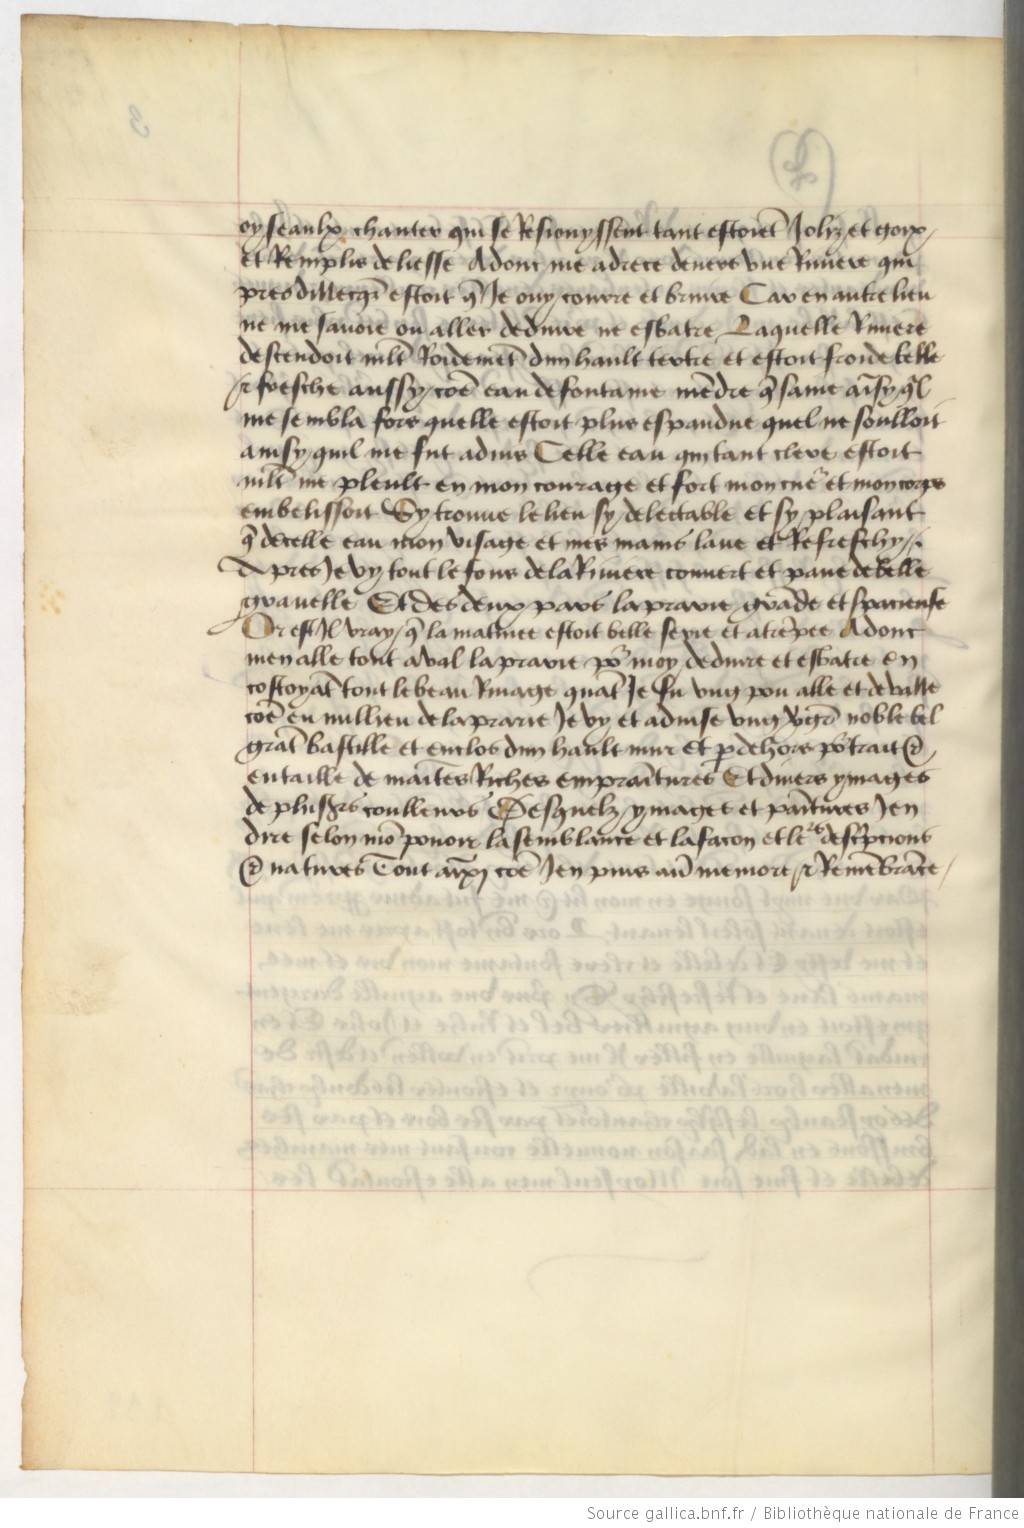 oyseaulx chanter qui se Resiouyssent tant estoiēt Jolyz et goix /
et Remplis de liesse Adonc me adrece deuers vne Riuiere qui
pres dillecq̄s estoit q̄ Je ouy courre et bruire Car en autre lieu
ne me sauoie ou aller deduire ne esbatre Laquelle Riuiere
descendoit mlt̄ Roidemēt dun hault tertre et estoit froide belle
& fresche aussy / coē eau de fontaine mēdre q̄ saine aīsy q̄l
me sembla fors quelle estoit plus espandue quel ne soulloit
ainsy quil me fut aduis Celle eau qui tant clere estoit
mlt̄ me pleult en mon courage et fort mon cue᷑ et mon corps
embelissoit Sy trouue le lieu sy delectable et sy plaisant
q̄ dicelle eau mon visage et mes mains laue et Refreschy /.
Apres Je vy tout le fons de la Riuiere couuert et paue de belle
grauelle Et des deux pars la prarie grāde et spacieuse
Or est Jl vray / q̄ la matinee estoit belle serie et atrēpee Adonc
men alle tout aual la prarie po᷑ moy deduire et esbatre en
costoyāt tout le beau Riuage quāt Je fu vng pou alle et deualle
coē en millieu de la prarie Je vy et aduise vng v̄gr̄ noble bel
grāt bastille et enclos dun hault mur Et p̄ dehors po᷑trait &
entaille de maītes Riches empraītures Et diuers ymages
de plus᷑rs coulleurs Desquelz ymages et paītures Jen
dire selon mō pouoir la semblance et la facon et le᷑s descr̄pcions
& natures Tout aīsy coē Jen puis au᷑ memoire & Remēbrāce /
Source gallica.bnf.fr / Bibliothèque nationale de France